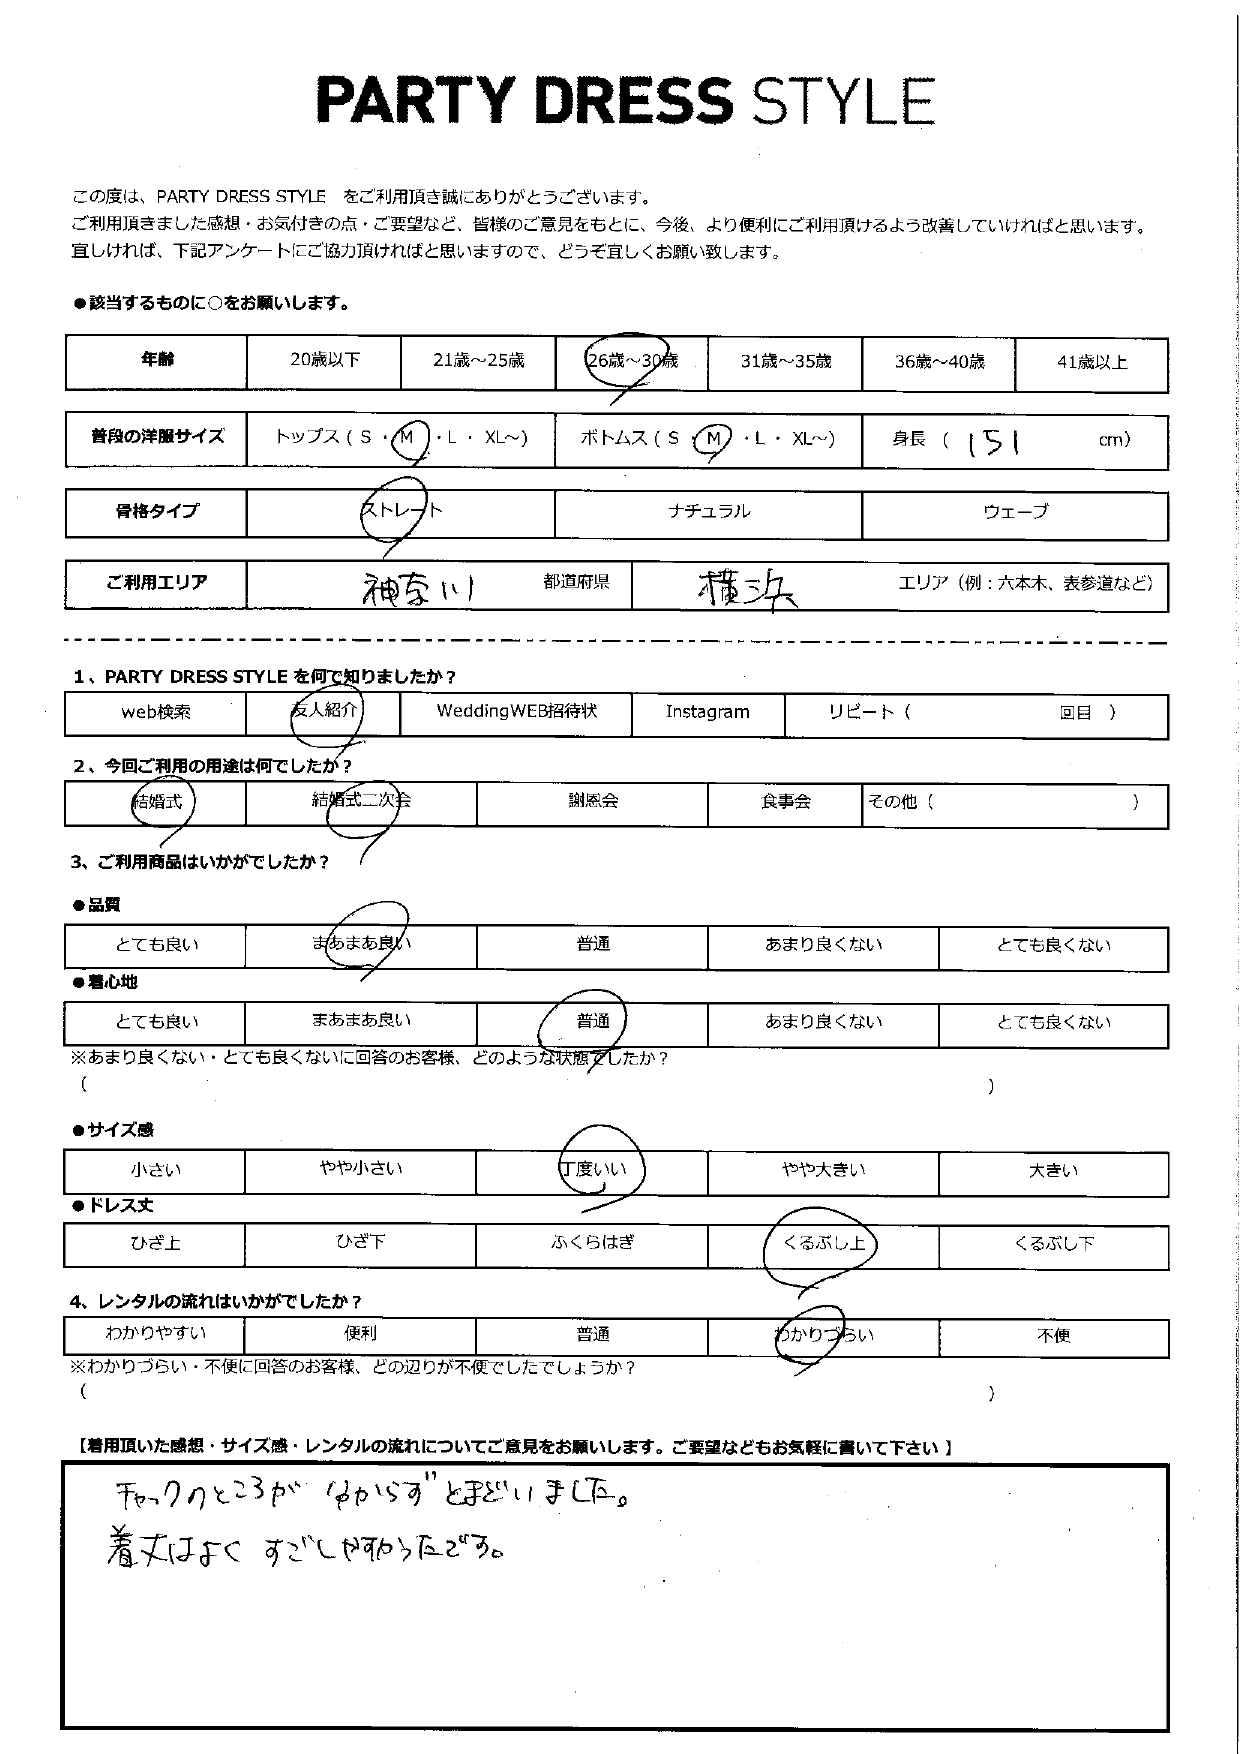 PARTY DRESS STYLE
この度は、PARTY DRESS STYLE をご利用頂き誠にありがとうございます。
ご利用頂きました感想・お気付きの点・ご要望など、皆様のご意見をもとに、今後、より便利にご利用頂けるよう改善していければと思います。
宜しければ、下記アンケートにご協力頂ければと思いますので、どうぞ宜しくお願い致します。
●該当するものに○をお願いします。
年齢 20歳以下 21歳～25歳 26歳～30歳 31歳～35歳 36歳～40歳 41歳以上
普段の洋服サイズ トップス（ S ・ M ・ L ・ XL～） ボトムス（ S ・ M ・ L ・ XL～） 身長 （ 151 cm）
骨格タイプ ストレート ナチュラル ウェーブ
ご利用エリア 神奈川 都道府県 横浜 エリア（例：六本木、表参道など）
1、PARTY DRESS STYLE を何で知りましたか？
web検索 友人紹介 WeddingWEB招待状 Instagram リピート（ 回目 ）
2、今回ご利用の用途は何でしたか？
結婚式 結婚式二次会 謝恩会 食事会 その他（ ）
3、ご利用商品はいかがでしたか？
●品質
とても良い まあまあ良い 普通 あまり良くない とても良くない
●着心地
とても良い まあまあ良い 普通 あまり良くない とても良くない
※あまり良くない・とても良くないに回答のお客様、どのような状態でしたか？
（ ）
●サイズ感
小さい やや小さい 丁度いい やや大きい 大きい
●ドレス丈
ひざ上 ひざ下 ふくらはぎ くるぶし上 くるぶし下
4、レンタルの流れはいかがでしたか？
わかりやすい 便利 普通 わかりづらい 不便
※わかりづらい・不便に回答のお客様、どの辺りが不便でしたでしょうか？
（ ）
【着用頂いた感想・サイズ感・レンタルの流れについてご意見をお願いします。ご要望などもお気軽に書いて下さい 】
チャックのところが分からずとまどいました。
着丈はよく すごしやすかったです。